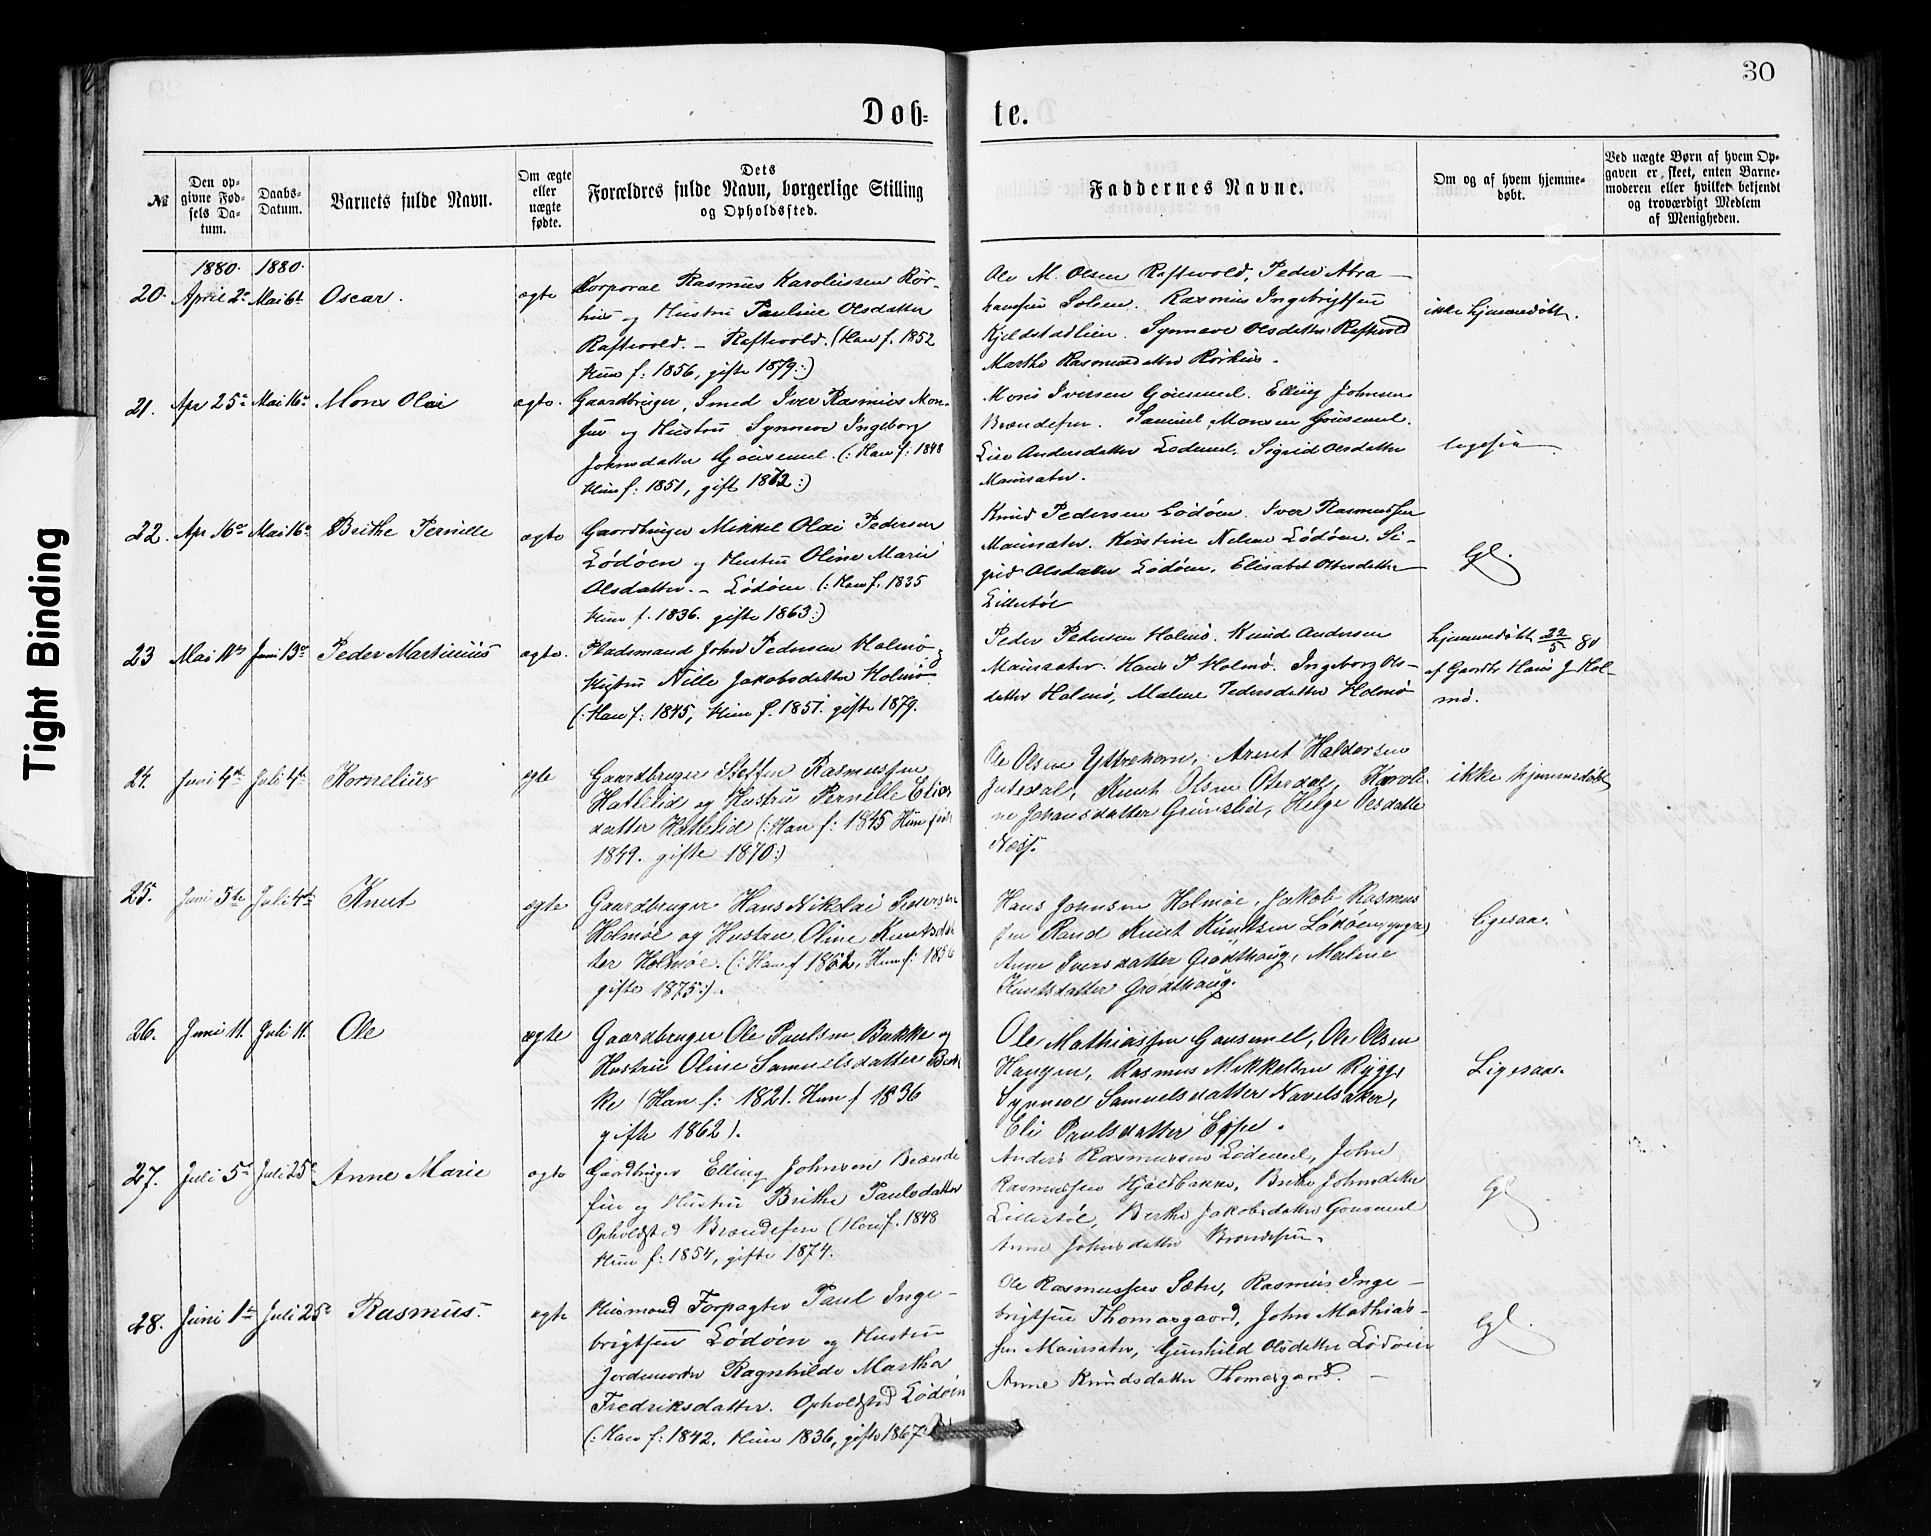 30
Døb-
te.
№
Den opgivne Fødsels Datum.
Daabs-Datum.
Barnets fulde Navn.
Om ægte eller uægte fødte.
Dets Forældres fulde Navn, borgerlige Stilling og Opholdssted.
Faddernes Navne.
Om og af hvem hjemmedøbt.
Ved uægte Børn af hvem Opgaven er skeet, enten Barnemoderen eller hvilket bekjendt og troværdigt Medlem af Menigheden.
1880. 1880.
20. April 2 Mai 6t Oscar. ægte
Korporal Rasmus Karolussen Rør-
hus og Hustru Pauline Olsdatter
Raftevold. - Raftevold. (Han f. 1852
Hun f: 1856, gifte 1879:)
Ole M. Olsen Raftevold, Peder Abra-
hamsen Solsen. Rasmus Ingebrigtsen
Kjeldstadlien. Synneve Olsdatter Raftevold
Marthe Rasmusdatter Rørhus.
ikke hjemmedøbt.
21. Apr 25 Mai 16 Mons Olai ægte.
Gaardbruger, Smed Iver Rasmus Mon-
sen og Hustru Synneve Ingeborg
Johnsdatter Gousemel. (: Han f: 1848
Hun f: 1851, gift 1872:)
Mons Iversen Gousemel. Elling Johnsen
Brændefur. Samuel Monsen Gousemel.
Lise Andersdatter Lødemel. Sigrid Olsdatter
Maursæter.
22. Apr 16 Mai 16 Brithe Pernille ægte
Gaardbruger Mikkel Olai Pedersen
Lødøen og Hustru Oline Marie
Olsdatter. - Lødøen (: Han f. 1835
Hun f. 1836. gifte 1863:)
Knud Pedersen Lødøen. Iver Rasmussen
Maursæter. Kirstine Nelsen Lødøen. Si-
grid Olsdatter Lødøen, Elisabet Olsdatter
Lillestøl
Gl.
23 Mai 11 Juni 13 Peder Martinius ægte.
Pladsmand John Pedersen Holmø og
Hustru Nille Jakobsdatter Holmø
(: Han f: 1845, Hun f. 1851. gifte 1879.
Peder Pedersen Holmø. Knud Andersen
Maursæter. Hans P Holmø. Ingeborg Ols-
datter Holmø, Malene Pedersdatter Holmø
hjemmedøbt 22/5 80
af Gaardbr Hans J Hol-
mø.
24. Juni 4de Juli 4de Kornelius ægte
Gaardbruger Steffen Rasmussen
Hatlelid og Hustru Pernille Elias
datter Hatlelid (: Han f: 1845 Hun
1849. gifte 1870:)
Ole Olsen Yttrehorn, Arent Haldorsen
Knut Olsen Otterdal, Karoli-
ne Johansdatter Grønslid, Helge Olsdatter
Næss.
ikke hjemmedøbt
25. Juni 5te Juli 4de Knut ægte
Gaardbruger Hans Nikolai Pedersen
Holmøe og Hustru Oline Knutsdat
ter Holmøe. (: Han f 1862, Hun f: 1856
gifte 1875:).
Hans Johnsen Holmøe, Jakob Rasmus
sen Rand Knut Knutsen Løkøen yngre
Anne Iversdatter Grødthaug, Malene
Knutsdatter Grødthaug.
ligesaa.
26. Juni 11. Juli 11. Ole ægte
Gaardbruger Ole Paulsen Bakke og
Hustru Oline Samuelsdatter Bak
ke (Han f: 1821. Hun f 1836
gifte 1862).
Ole Mathiassen Gausemel, Ole Olsen
Haugen, Rasmus Mikkelsen Rygg,
Synneve Samuelsdatter Navelsaker,
Eli Paulsdatter Eppe.
Ligesaa.
27. Juli 5 Juli 25 Anne Marie ægte
Gaardbruger Elling Johnsen Brænde
fur og Hustru Brithe Paulsdatter
Opholdsted Brændefur (Han f. 1848
Hun f: 1854, gifte 1874.
Anders Rasmussen Lødemel, John
Rasmussen Hjelbakke, Brithe Johnsdatter
Lillestøl, Berthe Jakobsdatter Gousemel
Anne Johnsdatter Brændefur.
Gl
28. Juni 1 Juli 25 Rasmus. ægte
Husmand Forpagter Paul Inge-
brigtsen Lødøen og Hustru
Jordemoder Ragnhilde Martha
Fredriksdatter. Opholdsted Lødøen
(: Han f: 1842. Hun 1836, gifte 1867:)
Ole Rasmussen Sæter, Rasmus Inge-
brigtsen Thomasgaard, John Mathias-
sen Maursæter, Gunhild Olsdatter Lødøen
Anne Knudsdatter Thomasgaard.
Gl.
Tight Binding